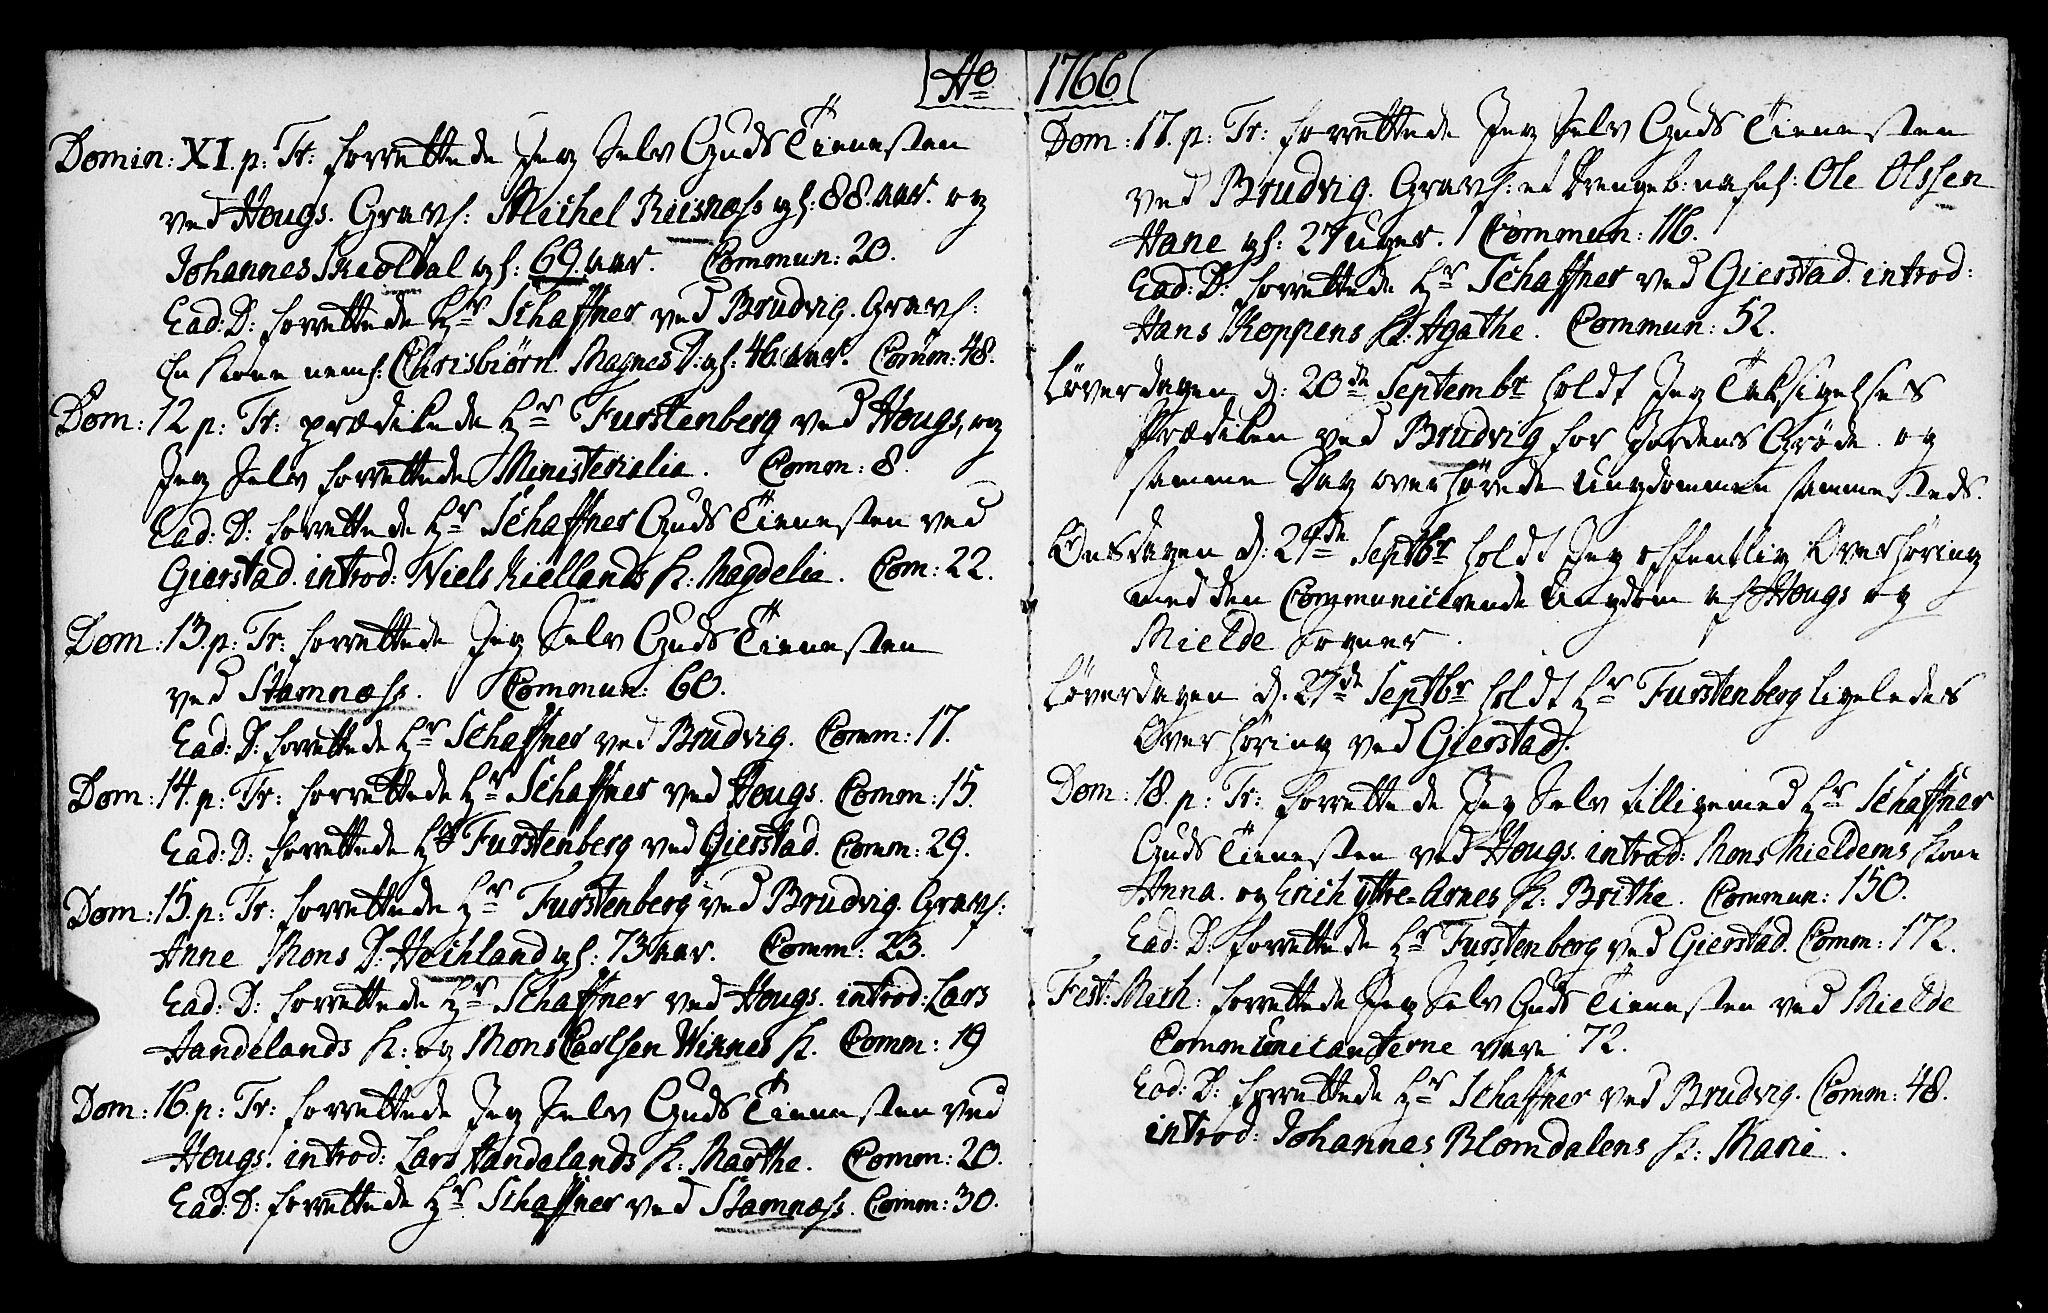 Ao 1766
Domin: XI. p: Tr: forrettede Jeg Selv Guds Tienesten
ved Hougs. Gravf: Michel Riisnæss gl: 88. aar. og
Johannes Skioldal gl: 69. aar. Commun: 20.
Ead: D: forrettede Hr Schaffner ved Brudvig. Gravf:
En Kone nemlf: Chrisbiørn Magnes D: gl: 46. aar. Comm: 48.
Dom: 12 p: Tr: prædikede Hr Furstenberg ved Hougs, og
Jeg Selv forrettede Ministerialia. Comm: 8.
Ead: D: forrettede Hr Schaffner Guds Tienesten ved
Gierstad. introd: Niels Kiellands K: Magdelia. Com: 22.
Dom: 13. p: Tr: forrettede Jeg Selv Guds Tienesten
ved Stamnæss. Commun: 60.
Ead: D: forrettede Hr Schaffner ved Brudvig. Comm: 17.
Dom: 14. p: Tr: forrettede Hr Schaffner ved Hougs. Comm: 15.
Ead: D: forrettede Hr Furstenberg ved Gierstad. Comm: 29.
Dom: 15. p: Tr: forrettede Hr Furstenberg ved Brudvig. Gravf:
Anne Mons D: Heihland gl: 73 aar. Comm: 23.
Ead: D: forrettede Hr Schaffner ved Hougs. introd: Lars
Handelands K: og Mons Carlsen Wixnes K. Comm: 19
Dom: 16. p: Tr: forrettede Jeg Selv Guds Tienesten ved
Hougs. introd: Lars Handelands K: Marthe. Comm: 20.
Ead: D: forrettede Hr Schaffner ved Stamnæss. Comm: 30.
Dom: 17. p: Tr: forrettede Jeg Selv Guds Tienesten
ved Brudvig. Gravf: et Drengeb: nafnl: Ole Olssen
Hane gl: 27 uger. Commun: 116.
Ead: D: forrettede Hr Schaffner ved Gierstad. introd:
Hans Koppens K: Agathe. Commun: 52.
Løverdagen d: 20de Septembr holdt Jeg Taksigelses
Prædiken ved Brudvig for Jordens Grøde. og
samme Dag overhørede Ungdommen sammesteds.
Onsdagen d: 24de Septbr holdt Jeg offentlig Overhøring
med den Communicerende Ungdom af Hougs og
Mielde Sogner.
Løverdagen d. 27de Septbr holdt Hr Furstenberg ligeledes
Overhøring ved Gierstad.
Dom: 18. p: Tr: forrettede Jeg Selv tilligemed Hr Schaffner
Guds Tienesten ved Hougs. introd: Mons Mieldems Kone
Anna. og Erich ÿttre=Arnes K: Brithe. Commun: 150.
Ead: D: forrettede Hr Furstenberg ved Gierstad. Comm: 172.
Fest: Mich: forrettede Jeg Selv Guds Tienesten ved Mielde
Communicanterne vare 72.
Eod: D: forrettede Hr Schaffner ved Brudvig. Comm: 48.
introd: Johannes Blomdalens K: Marie.